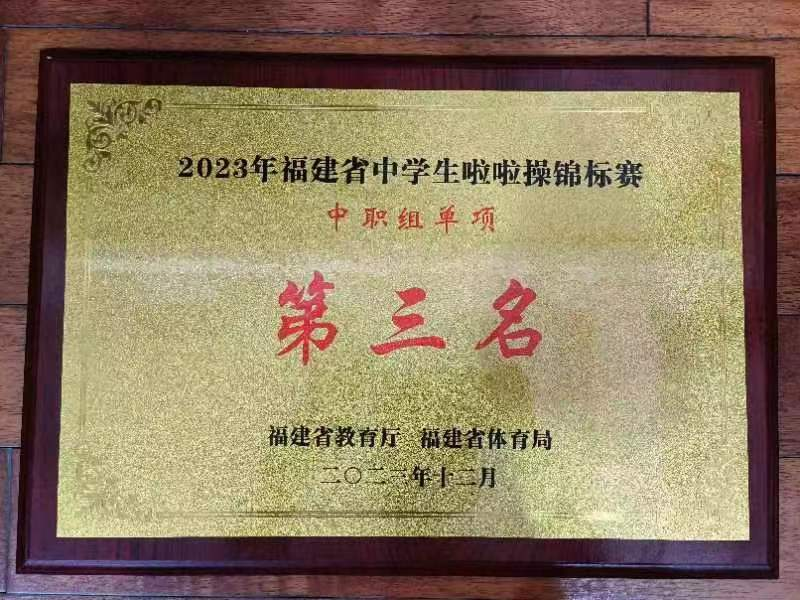 2023年福建省中学生啦啦操锦标赛
中职组单项
第三名
福建省教育厅 福建省体育局
二〇二三年十二月